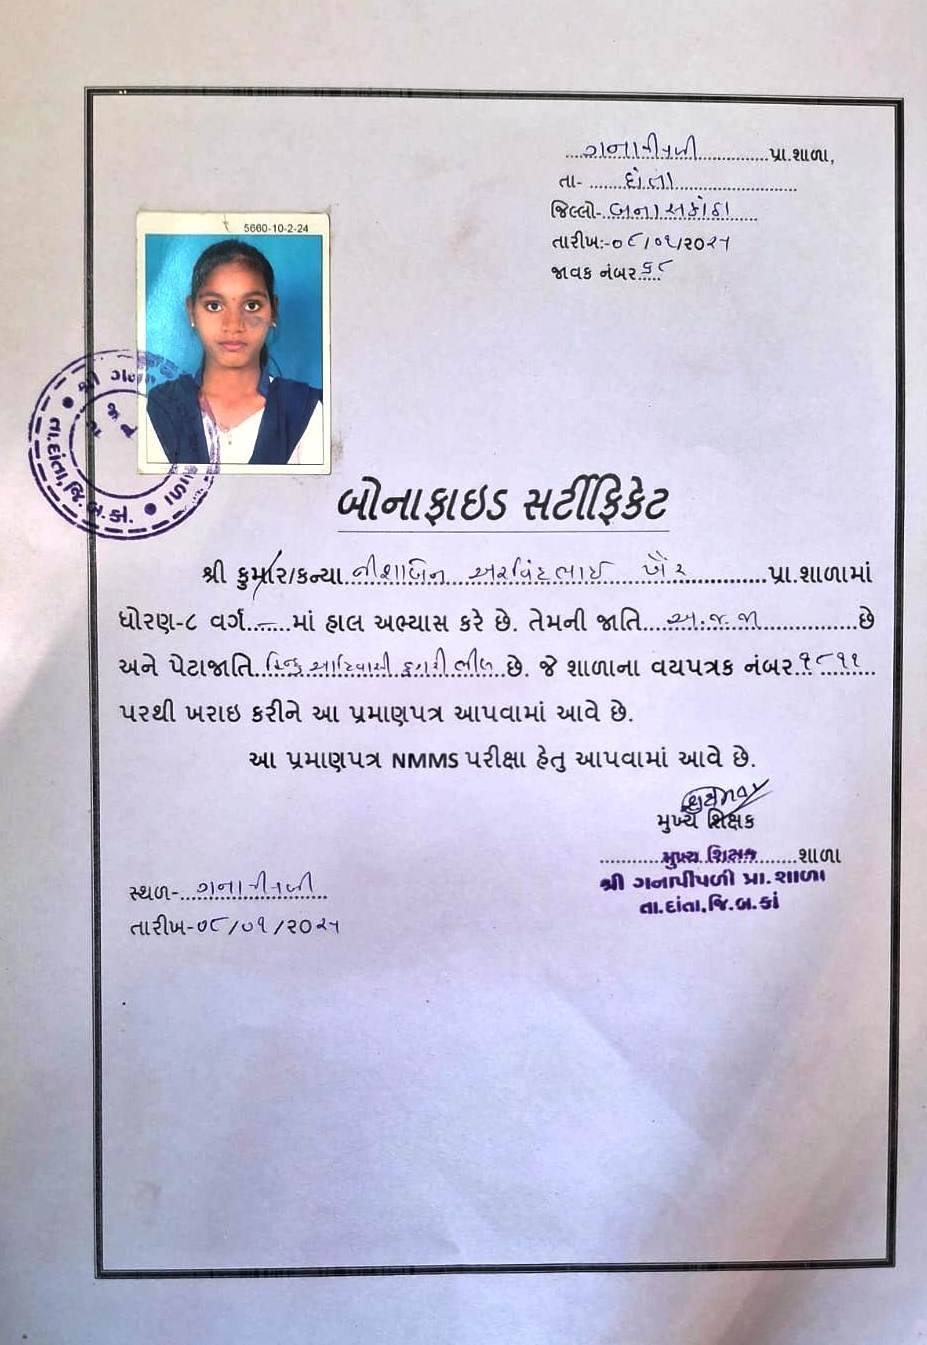 ગનાપીપળી પ્રા.શાળા,
તા- દાંતા
જિલ્લો- બનાસકાંઠા
તારીખ:-૦૮/૦૧/૨૦૨૫
જાવક નંબર ૬૮
5660-10-2-24
શ્રી ગના
તા.દાંતા,જિ.બ.કાં.
બોનાફાઇડ સર્ટીફિકેટ
શ્રી કુમાર/કન્યા નીશાબેન અરવિંદભાઈ ખૈર પ્રા.શાળામાં
ધોરણ-૮ વર્ગ - માં હાલ અભ્યાસ કરે છે. તેમની જાતિ અ.જ.જા છે
અને પેટાજાતિ હિન્દુ આદિવાસી ડુંગરી ભીલ છે. જે શાળાના વયપત્રક નંબર ૧૮૧૧
પરથી ખરાઇ કરીને આ પ્રમાણપત્ર આપવામાં આવે છે.
આ પ્રમાણપત્ર NMMS પરીક્ષા હેતુ આપવામાં આવે છે.
મુખ્ય શિક્ષક
મુખ્ય શિક્ષક શાળા
શ્રી ગનાપીપળી પ્રા.શાળા
તા.દાંતા,જિ.બ.કાં
સ્થળ- ગનાપીપળી
તારીખ-૦૮/૦૧/૨૦૨૫